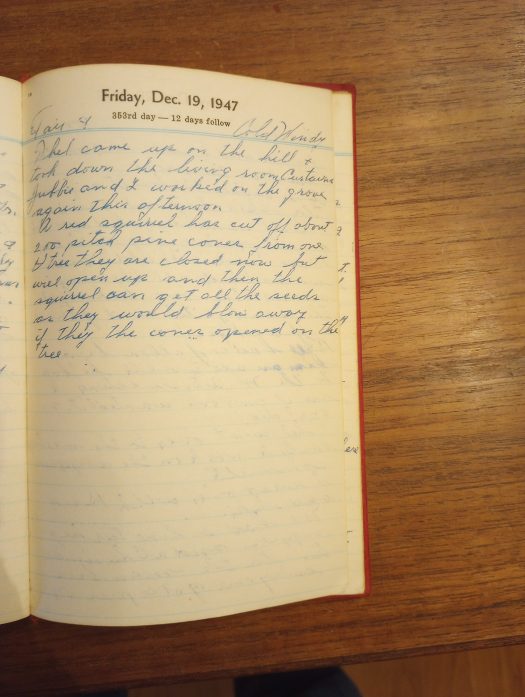 Friday, Dec. 19, 1947
353rd day — 12 days follow
Fair & Cold Windy
came up on the hill &
took down the living room Curtains
Hubbie and I worked on the grove
again this afternoon
A red squirrel has cut off about
200 pitch pine cones from one
tree they are closed now but
will open up and then the
squirrel can get all the seeds
as they would blow away
if they the cones opened on the
tree